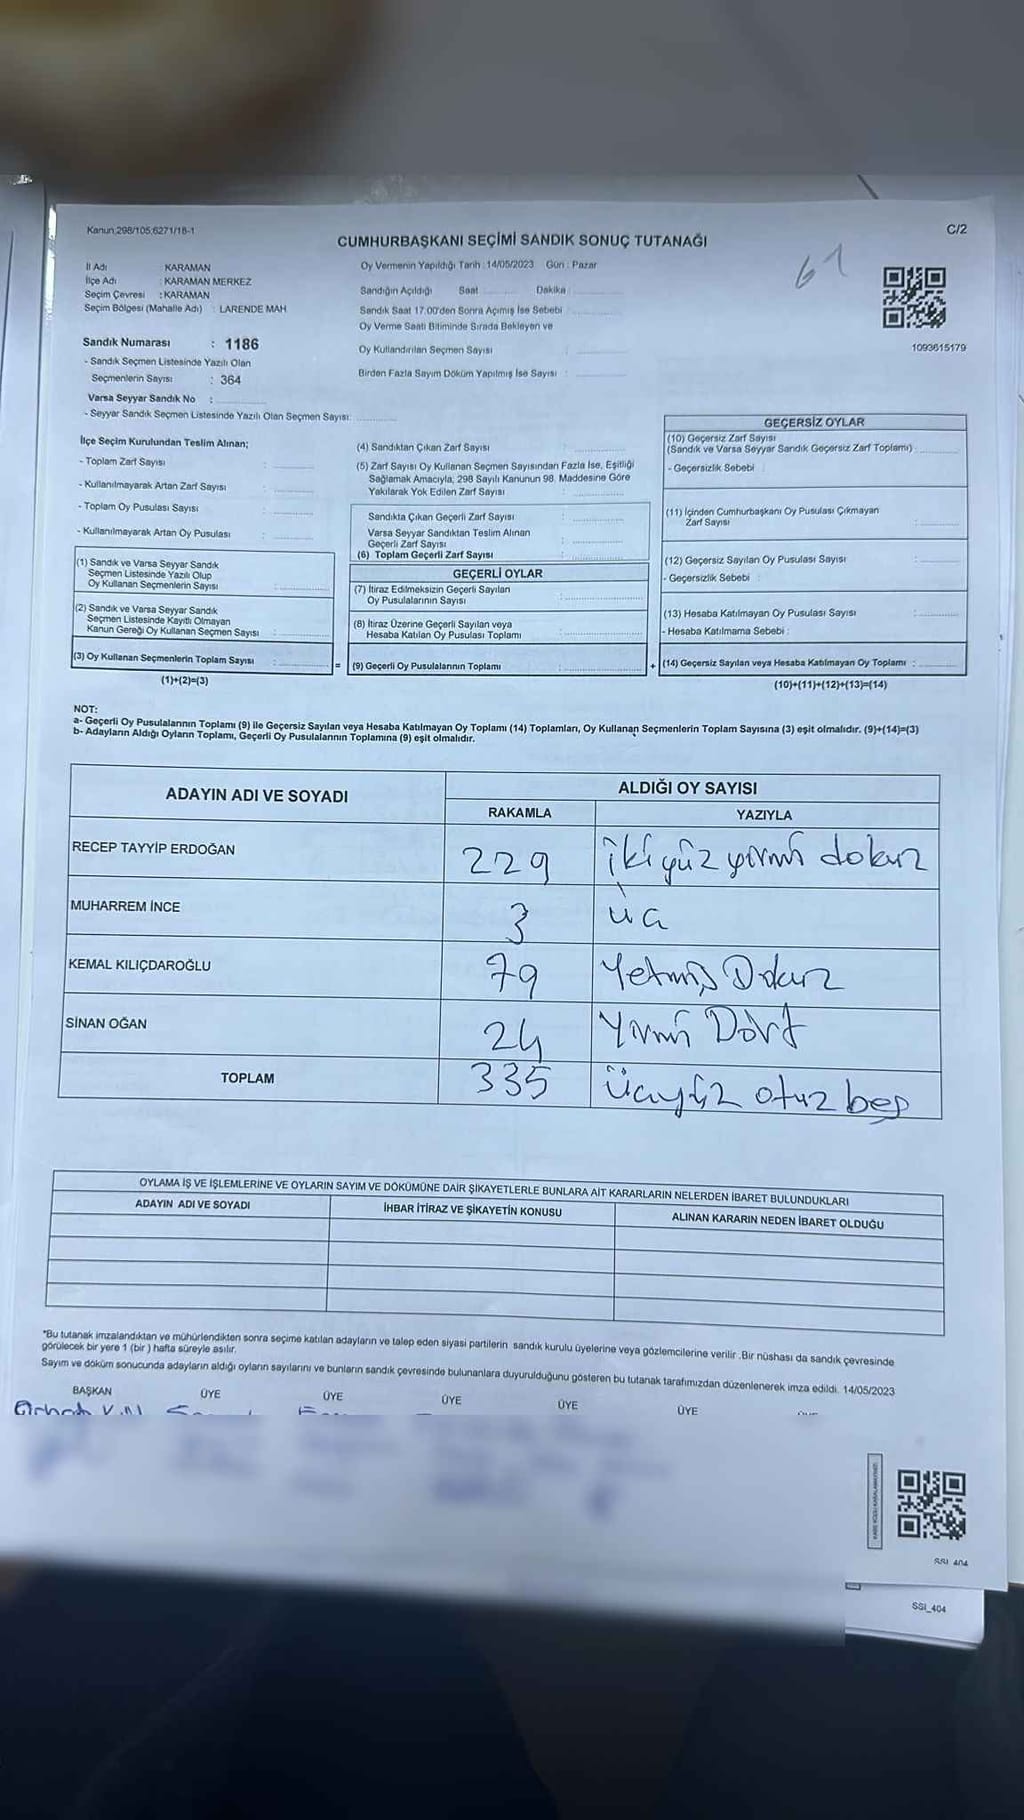 Kanun;298/105;6271/18-1
C/2
CUMHURBAŞKANI SEÇİMİ SANDIK SONUÇ TUTANAĞI
61
İl Adı KARAMAN
İlçe Adı : KARAMAN MERKEZ
Seçim Çevresi : KARAMAN
Seçim Bölgesi (Mahalle Adı) : LARENDE MAH
Sandık Numarası : 1186
- Sandık Seçmen Listesinde Yazılı Olan
Seçmenlerin Sayısı : 364
Varsa Seyyar Sandık No :
- Seyyar Sandık Seçmen Listesinde Yazılı Olan Seçmen Sayısı:
Oy Vermenin Yapıldığı Tarih : 14/05/2023 Gün : Pazar
Sandığın Açıldığı Saat Dakika
Sandık Saat 17.00'den Sonra Açımış İse Sebebi
Oy Verme Saati Bitiminde Sırada Bekleyen ve
Oy Kullandırılan Seçmen Sayısı :
Birden Fazla Sayım Döküm Yapılmış İse Sayısı :
1093615179
İlçe Seçim Kurulundan Teslim Alınan;
- Toplam Zarf Sayısı :
- Kullanılmayarak Artan Zarf Sayısı :
- Toplam Oy Pusulası Sayısı :
- Kullanılmayarak Artan Oy Pusulası :
(1) Sandık ve Varsa Seyyar Sandık
Seçmen Listesinde Yazılı Olup
Oy Kullanan Seçmenlerin Sayısı :
(2) Sandık ve Varsa Seyyar Sandık
Seçmen Listesinde Kayıtlı Olmayan
Kanun Gereği Oy Kullanan Seçmen Sayısı :
(3) Oy Kullanan Seçmenlerin Toplam Sayısı :
(1)+(2)=(3)
(4) Sandıktan Çıkan Zarf Sayısı :
(5) Zarf Sayısı Oy Kullanan Seçmen Sayısından Fazla İse, Eşitliği
Sağlamak Amacıyla, 298 Sayılı Kanunun 98. Maddesine Göre
Yakılarak Yok Edilen Zarf Sayısı :
Sandıkta Çıkan Geçerli Zarf Sayısı :
Varsa Seyyar Sandıktan Teslim Alınan
Geçerli Zarf Sayısı :
(6) Toplam Geçerli Zarf Sayısı :
GEÇERLİ OYLAR
(7) İtiraz Edilmeksizin Geçerli Sayılan
Oy Pusulalarının Sayısı :
(8) İtiraz Üzerine Geçerli Sayılan veya
Hesaba Katılan Oy Pusulası Toplamı :
= (9) Geçerli Oy Pusulalarının Toplamı :
GEÇERSİZ OYLAR
(10) Geçersiz Zarf Sayısı
(Sandık ve Varsa Seyyar Sandık Geçersiz Zarf Toplamı) :
- Geçersizlik Sebebi
(11) İçinden Cumhurbaşkanı Oy Pusulası Çıkmayan
Zarf Sayısı :
(12) Geçersiz Sayılan Oy Pusulası Sayısı :
- Geçersizlik Sebebi :
(13) Hesaba Katılmayan Oy Pusulası Sayısı :
- Hesaba Katılmama Sebebi :
+ (14) Geçersiz Sayılan veya Hesaba Katılmayan Oy Toplamı :
(10)+(11)+(12)+(13)=(14)
NOT:
a- Geçerli Oy Pusulalarının Toplamı (9) ile Geçersiz Sayılan veya Hesaba Katılmayan Oy Toplamı (14) Toplamları, Oy Kullanan Seçmenlerin Toplam Sayısına (3) eşit olmalıdır. (9)+(14)=(3)
b- Adayların Aldığı Oyların Toplamı, Geçerli Oy Pusulalarının Toplamına (9) eşit olmalıdır.
ADAYIN ADI VE SOYADI
ALDIĞI OY SAYISI
RAKAMLA YAZIYLA
RECEP TAYYİP ERDOĞAN 229 ikiyüz yirmi dokuz
MUHARREM İNCE 3 üç
KEMAL KILIÇDAROĞLU 79 Yetmiş Dokuz
SİNAN OĞAN 24 Yirmi Dört
TOPLAM 335 üçyüz otuz beş
OYLAMA İŞ VE İŞLEMLERİNE VE OYLARIN SAYIM VE DÖKÜMÜNE DAİR ŞİKAYETLERLE BUNLARA AİT KARARLARIN NELERDEN İBARET BULUNDUKLARI
ADAYIN ADI VE SOYADI İHBAR İTİRAZ VE ŞİKAYETİN KONUSU ALINAN KARARIN NEDEN İBARET OLDUĞU
*Bu tutanak imzalandıktan ve mühürlendikten sonra seçime katılan adayların ve talep eden siyasi partilerin sandık kurulu üyelerine veya gözlemcilerine verilir .Bir nüshası da sandık çevresinde
görülecek bir yere 1 (bir ) hafta süreyle asılır.
Sayım ve döküm sonucunda adayların aldığı oyların sayılarını ve bunların sandık çevresinde bulunanlara duyurulduğunu gösteren bu tutanak tarafımızdan düzenlenerek imza edildi. 14/05/2023
BAŞKAN ÜYE ÜYE ÜYE ÜYE ÜYE
SSI_404
SSI_404